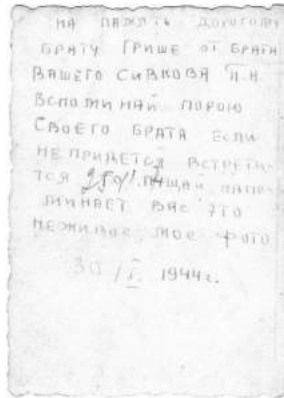 НА ПАМЯТЬ ДОРОГОМУ
БРАТУ ГРИШЕ ОТ БРАТА
ВАШЕГО СИВКОВА П.Н.
ВСПОМИНАЙ ПОРОЮ
СВОЕГО БРАТА ЕСЛИ
НЕ ПРИДЕТСЯ ВСТРЕТИ-
ТСЯ
МИНАЕТ ВАС ЭТО
НЕЖИВОЕ МОЕ ФОТО
30/I 1944г.